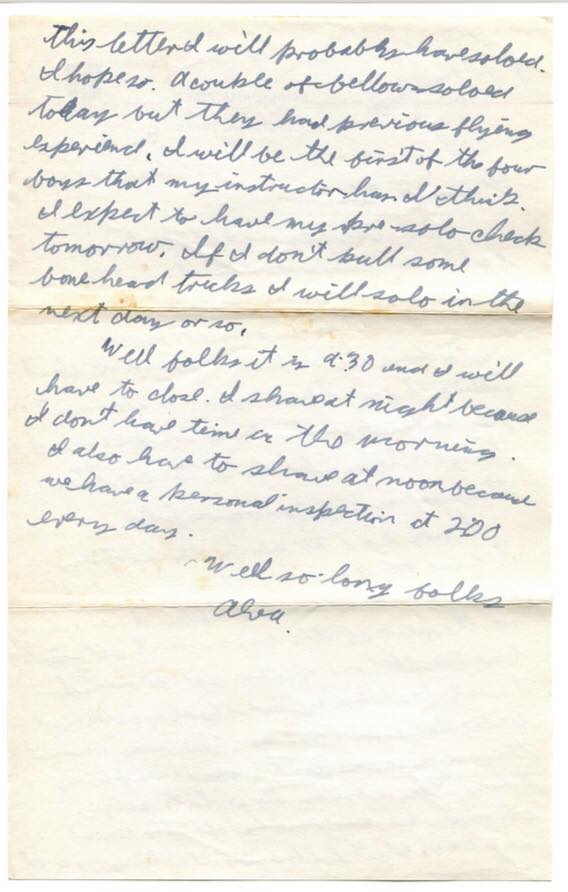 this letter I will probably have soloed.
I hope so. A couple of fellows soloed
today but they had previous flying
experience. I will be the first of the four
boys that my instructor has I think.
I expect to have my pre-solo check
tomorrow. If I don't pull some
bone head tricks I will solo in the
next day or so.
Well folks it is 9:30 and I will
have to close. I shave at night because
I don't have time in the morning.
I also have to shave at noon because
we have a personal inspection at 2:00
every day.
Well so-long folks
Alva.